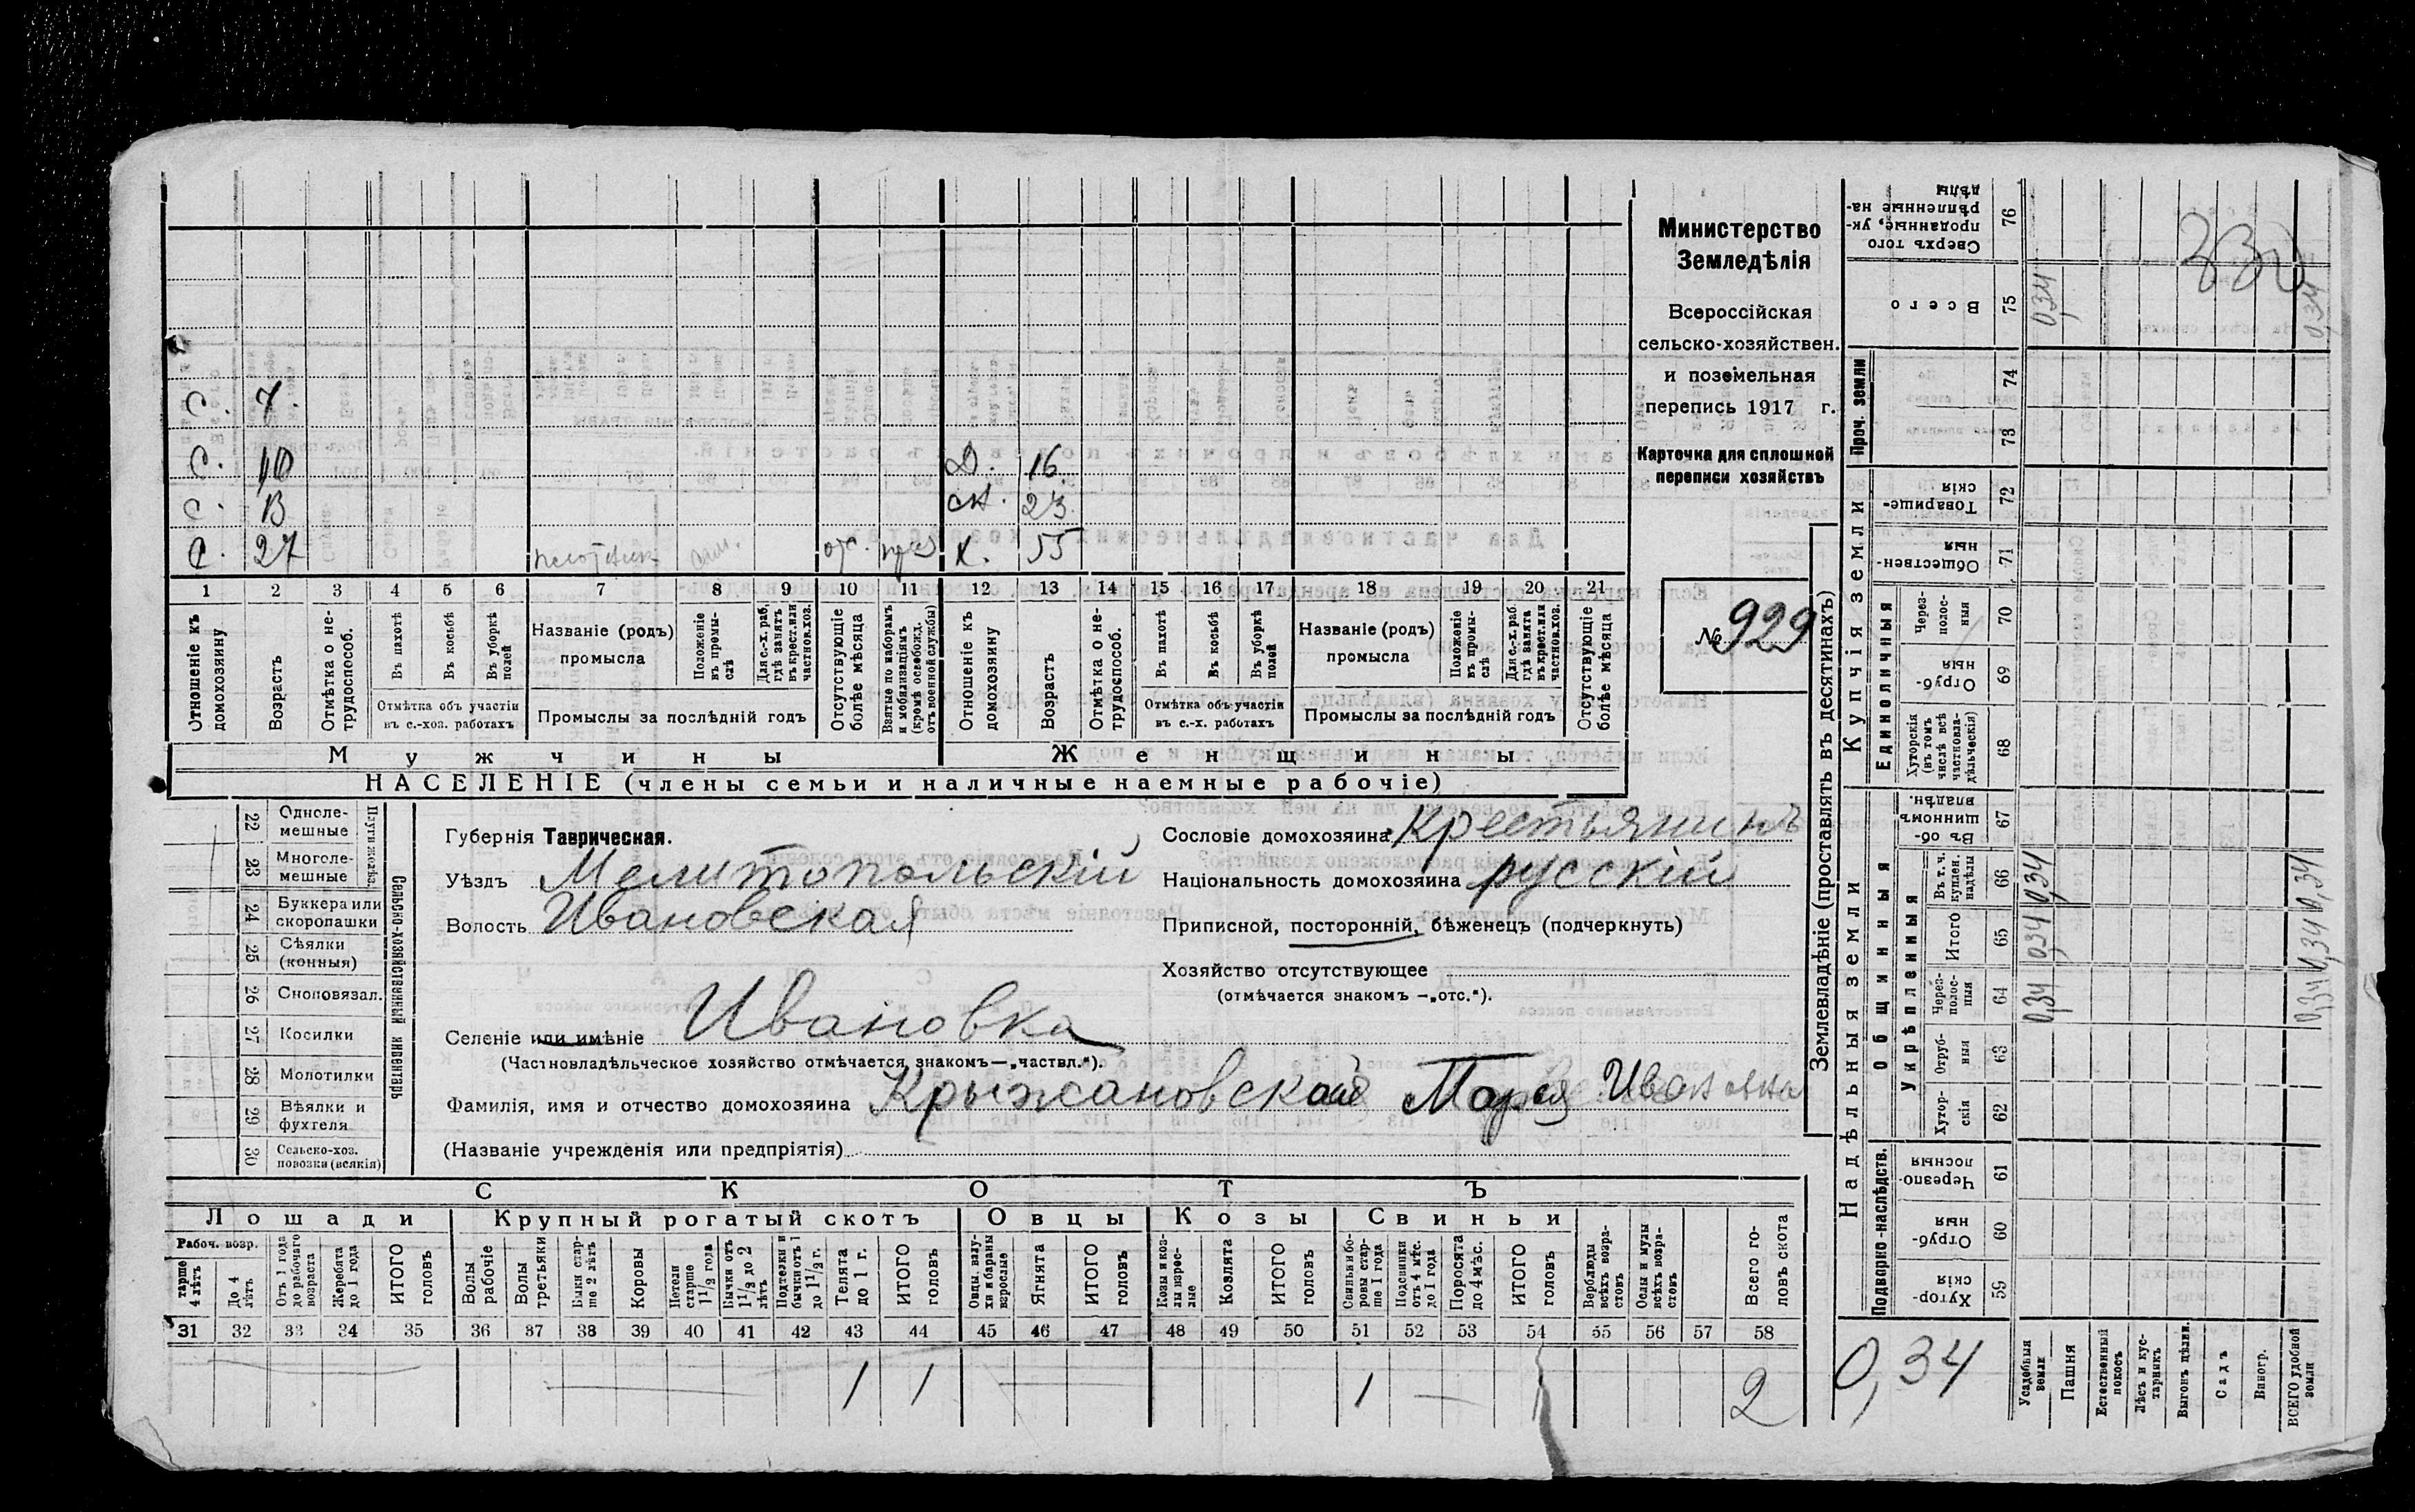 С. 7.
С. 10
С. 13
С. 27 плотник отс.
Д. 16.
сн. 23.
Х. 55
1 2 3 4 5 6 7 8 9 10 11 12 13 14 15 16 17 18 19 20 21
Отношеніе къ домохозяину
Возрастъ
Отмѣтка о не-
трудоспособ.
Въ пахотѣ
Въ косьбѣ
Въ уборкѣ
полей
Отмѣтка объ участіи
въ с.-хоз. работахъ
Названіе (родъ)
промысла
Положеніе
въ промы-
слѣ
Для с.-х. раб.
гдѣ занятъ
въ крест. или
частнов. хоз.
Промыслы за послѣдній годъ
Отсутствующіе
болѣе мѣсяца
Взятые по наборамъ
и мобилизаціямъ
(кромѣ освобожд.
отъ военной службы)
Отношеніе къ
домохозяину
Возрастъ
Отмѣтка о не-
трудоспособ.
Въ пахотѣ
Въ косьбѣ
Въ уборкѣ
полей
Отмѣтка объ участіи
въ с.-х. работахъ
Названіе (родъ)
промысла
Положеніе
въ промы-
слѣ
Для с.-х. раб.
гдѣ занята
въ крест. или
частнов. хоз.
Промыслы за послѣдній годъ
Отсутствующіе
болѣе мѣсяца
Мужчины
Женщины
НАСЕЛЕНІЕ (члены семьи и наличные наемные рабочіе)
Министерство
Земледѣлія
Всероссійская
сельско-хозяйствен.
и поземельная
перепись 1917 г.
Карточка для сплошной
переписи хозяйствъ
№ 929
22 Одноле-
мешные
23 Многоле-
мешные
Плуги желѣз.
24 Буккера или
скоропашки
25 Сѣялки
(конныя)
26 Сноповязал.
27 Косилки
28 Молотилки
29 Вѣялки и
фухтеля
30 Сельско-хоз.
повозки (всякія)
Сельско-хозяйственный инвентарь
Губернія Таврическая.
Уѣздъ Мелитопольскій
Волость Ивановская
Селеніе или имѣніе Ивановка
(Частновладѣльческое хозяйство отмѣчается знакомъ—„частвл.“).
Фамилія, имя и отчество домохозяина Крыжановская Марья Ивановна
(Названіе учрежденія или предпріятія)
Сословіе домохозяина Крестьянинъ
Національность домохозяина русскій
Приписной, посторонній, бѣженецъ (подчеркнуть)
Хозяйство отсутствующее
(отмѣчается знакомъ —„отс.“).
СКОТЪ
Лошади
Крупный рогатый скотъ
Овцы
Козы
Свиньи
Рабоч. возр.
тарше
4 лѣтъ
До 4
лѣтъ
Отъ 1 года
до рабочаго
возраста
Жеребята
до 1 года
ИТОГО
головъ
Волы
рабочіе
Волы
третьяки
Быки стар-
ше 2 лѣтъ
Коровы
Нетели
старше
1 1/2 года
Бычки отъ
1 1/2 до 2
лѣтъ
Подтелки и
бычки отъ 1
до 1 1/2 г.
Телята
до 1 г.
ИТОГО
головъ
Овцы, валу-
хи и бараны
взрослые
Ягнята
ИТОГО
головъ
Козы и коз-
лы взрос-
лые
Козлята
ИТОГО
головъ
Свиньи и бо-
ровы стар-
ше 1 года
Подсвинки
отъ 4 мѣс.
до 1 года
Поросята
до 4 мѣс.
ИТОГО
головъ
Верблюды
всѣхъ возра-
стовъ
Ослы и мулы
всѣхъ возра-
стовъ
Всего го-
ловъ скота
31 32 33 34 35 36 37 38 39 40 41 42 43 44 45 46 47 48 49 50 51 52 53 54 55 56 57 58
1 1 1 — 1 2
Землевладѣніе (проставлять въ десятинахъ)
Надѣльныя земли
Купчія земли
Проч. земли
Подворно-наслѣдств.
Общинныя
Укрѣпленныя
Единоличныя
Сверхъ того
проданные, ук-
рѣпленные на-
дѣлы
76
Всего
75
74
73
Товарище-
скія
72
Обществен-
ныя
71
Через-
полос-
ныя
70
Отруб-
ныя
69
Хуторскія
(въ томъ
числѣ всѣ
частновла-
дѣльческія)
68
Въ об-
щинномъ
владѣн.
67
Въ т. ч.
куплен.
надѣлы
66
Итого
65
Через-
полос-
ныя
64
Отруб-
ныя
63
Хутор-
скія
62
Черезпо-
лосныя
61
Отруб-
ныя
60
Хутор-
скія
59
0,34 0,34 0,34 0,34
0,34 0,34 0,34 0,34
0,34
Усадебныя
земли
Пашня
Естественный
покосъ
Лѣсъ и кус-
тарникъ
Выгонъ цѣлин.
Садъ
Виногр.
ВСЕГО удобной
земли